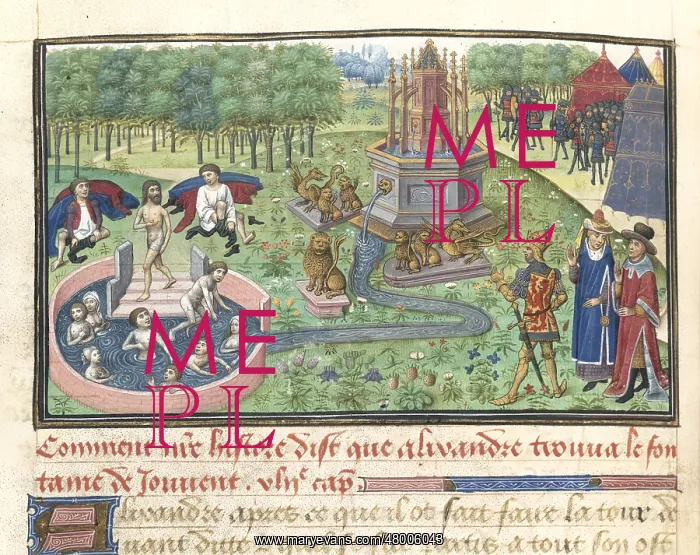 ME
PL
ME
PL
Comment nr̃e dist que alixandre trouua le fon
taine de Jouuent . cap̃
Alixandre apres ce que il ot fait faire la tour de
uant dicte a tout son ost
www.maryevans.com/48006048